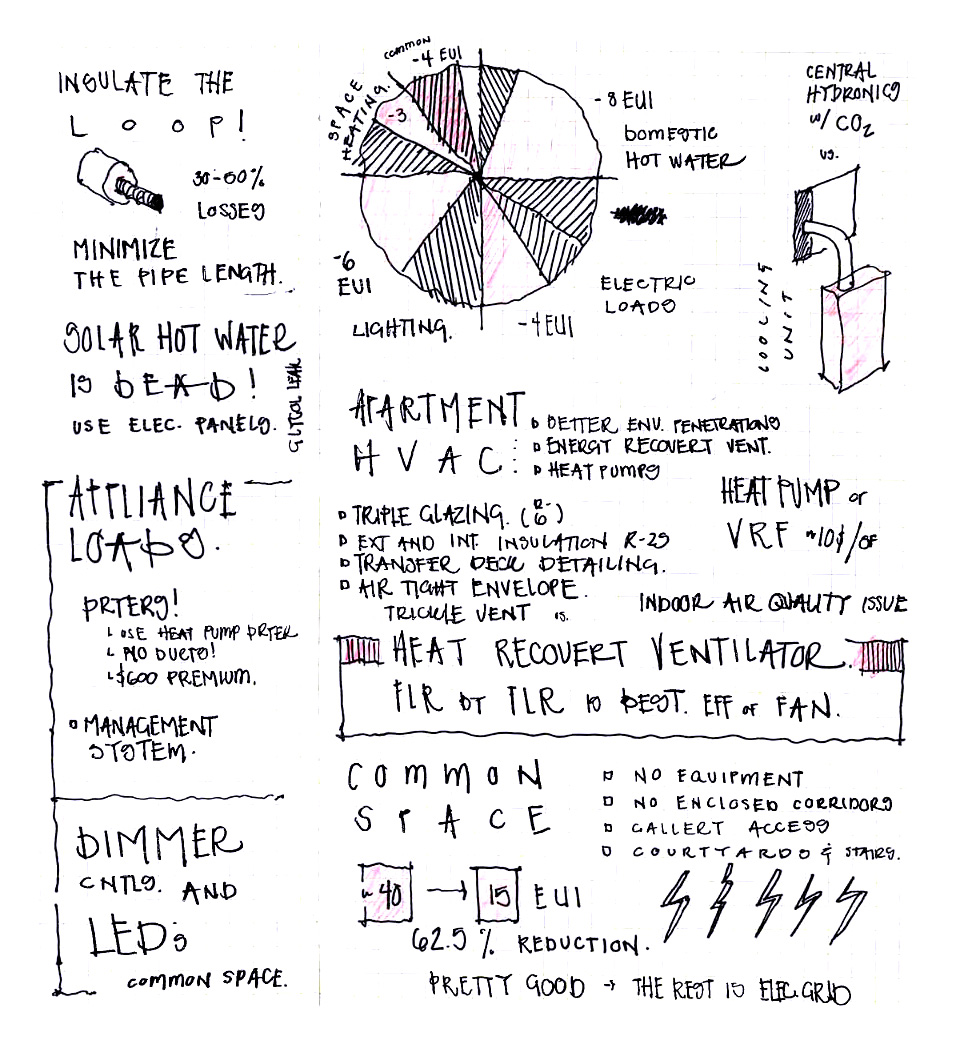 INSULATE THE
LOOP!
30-50%
LOSSES
MINIMIZE
THE PIPE LENGTH.
SOLAR HOT WATER
IS DEAD!
USE ELEC. PANELS.
GLYCOL LEAK
APPLIANCE
LOADS.
DRYERS!
USE HEAT PUMP DRYER
NO DUCTS!
$600 PREMIUM.
MANAGEMENT
SYSTEM.
DIMMER
CNTLS. AND
LEDS
COMMON SPACE.
COMMON
-4 EUI
SPACE
HEATING.
-3
-8 EUI
DOMESTIC
HOT WATER
ELECTRIC
LOADS
-4 EUI
-6
EUI
LIGHTING.
CENTRAL
HYDRONICS
W/ CO2
VS.
COOLING
UNIT
APARTMENT
HVAC:
BETTER ENV. PENETRATIONS
ENERGY RECOVERY VENT.
HEAT PUMPS
TRIPLE GLAZING. (R-6)
EXT AND INT. INSULATION R-25
TRANSFER DECK DETAILING.
AIR TIGHT ENVELOPE.
HEAT PUMP or
VRF ~10$/SF
TRICKLE VENT IS.
INDOOR AIR QUALITY ISSUE
HEAT RECOVERY VENTILATOR.
FLR BY FLR IS BEST. EFF of FAN.
COMMON
SPACE
NO EQUIPMENT
NO ENCLOSED CORRIDORS
GALLERY ACCESS
COURTYARDS & STAIRS.
~40 → 15 EUI
62.5% REDUCTION.
PRETTY GOOD → THE REST IS ELEC. GRID